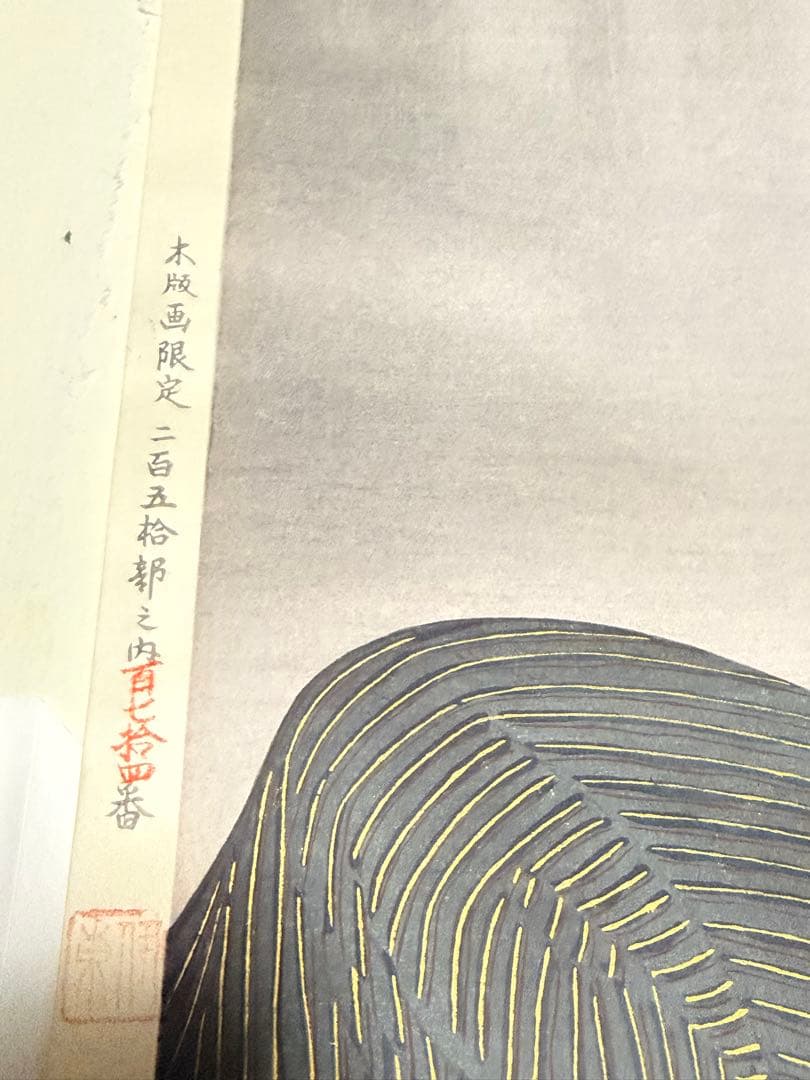 木版画限定二百五拾部之内百七拾四番